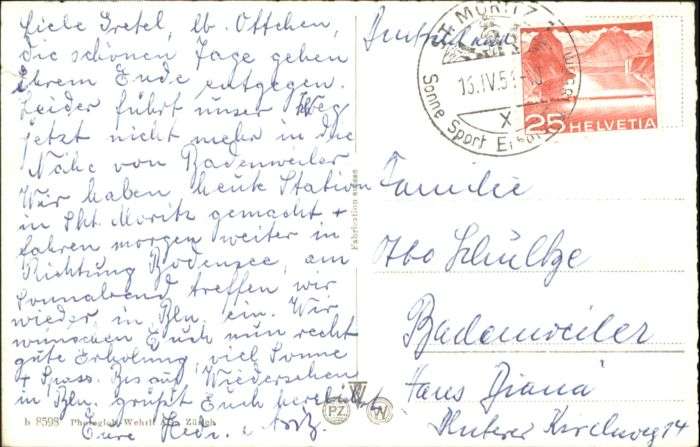 Liebe Gretel, lb. Ottchen,
die schönen Tage gehen
ihrem Ende entgegen.
Leider führt unser Weg
jetzt nicht mehr in die
Nähe von Badenweiler
Wir haben heute Station
in Skt. Moritz gemacht +
fahren morgen weiter in
Richtung Bodensee, am
Sonnabend treffen wir
wieder in Bln. ein. Wir
wünschen Euch nun recht
gute Erholung, viel Sonne
+ Spass. Bis auf Wiedersehen
in Bln. grüßt Euch herzlichst
Eure
b 8598 Photoglob-Wehrli A.G. Zürich
Fabrication suisse
PZ
Deutschland
ST. MORITZ
13.IV.51
X
Sonne Sport
25 HELVETIA
Familie
Schultze
Badenweiler
Haus "Diana"
Hinterer Kirchweg 14